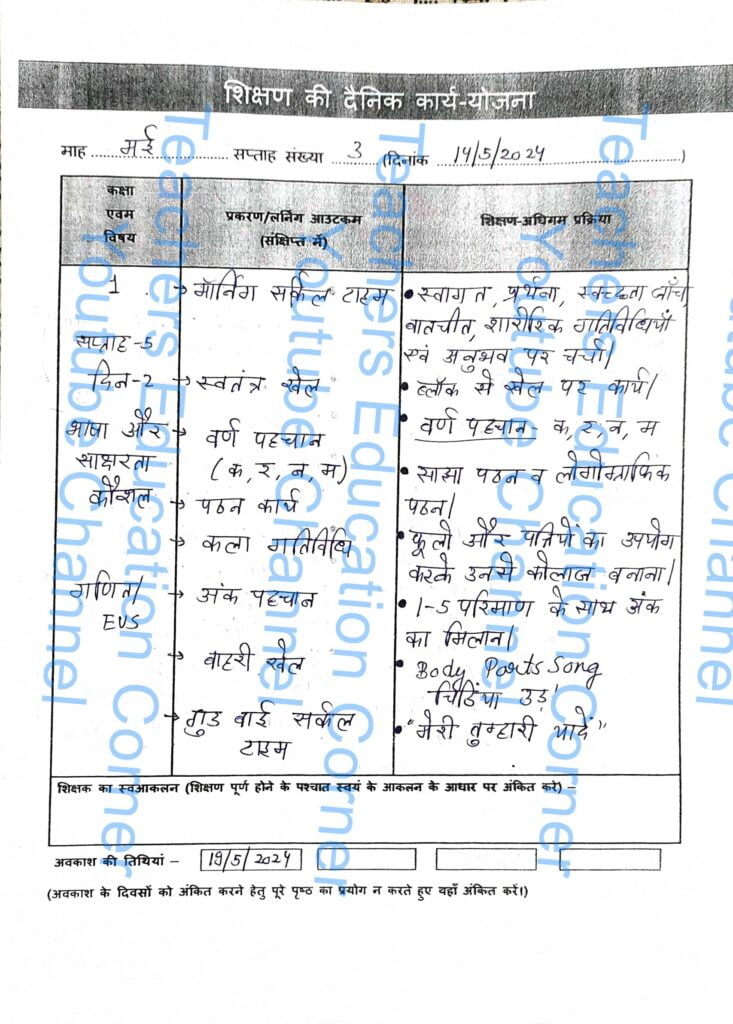 शिक्षण की दैनिक कार्य-योजना
माह मई सप्ताह संख्या 3 (दिनांक 14/5/2024)
कक्षा एवम विषय
प्रकरण/लर्निंग आउटकम (संक्षिप्त में)
शिक्षण-अधिगम प्रक्रिया
1
सप्ताह-5
दिन-2
भाषा और
साक्षरता
कौशल
गणित/
EVS
→ मॉर्निंग सर्कल टाइम
→ स्वतंत्र खेल
→ वर्ण पहचान
(क, र, न, म)
→ पठन कार्य
→ कला गतिविधि
→ अंक पहचान
→ बाहरी खेल
→ गुड बाई सर्कल
टाइम
• स्वागत, प्रर्थना, स्वच्छता जाँच
वातचीत, शारीरिक गतिविधियाँ
एवं अनुभव पर चर्चा।
• ब्लॉक से खेल पर कार्य।
• वर्ण पहचान - क, र, न, म
• साझा पठन व लोगोग्राफिक
पठन।
• फूलो और पत्तियों का उपयोग
करके उनसे कोलाज बनाना।
• 1-5 परिमाण के साथ अंक
का मिलान।
• Body Parts Song
चिड़िया उड़
• "मेरी तुम्हारी यादें"
शिक्षक का स्वआकलन (शिक्षण पूर्ण होने के पश्चात स्वयं के आकलन के आधार पर अंकित करे) –
अवकाश की तिथियां – 19/5/2024
(अवकाश के दिवसों को अंकित करने हेतु पूरे पृष्ठ का प्रयोग न करते हुए यहाँ अंकित करें।)
Teachers Education Corner
Youtube Channel
Teachers Education Corner
Youtube Channel
Teachers Education Corner
Youtube Channel